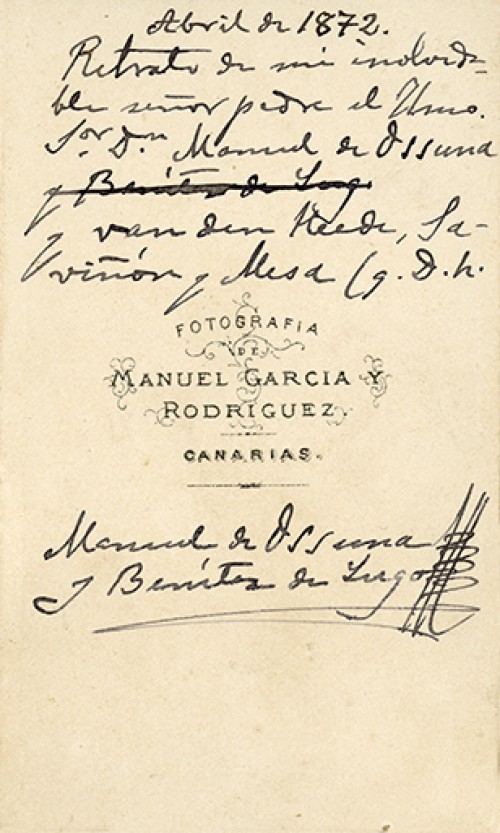 Abril de 1872.
Retrato de mi inolvida-
ble señor padre el Ilmo.
Sor. Dn. Manuel de Ossuna
y Benítez de Lugo
y van den Heede, Sa-
viñón y Mesa (q. D. h.
FOTOGRAFIA
DE
MANUEL GARCIA Y
RODRIGUEZ.
CANARIAS.
Manuel de Ossuna
y Benítez de Lugo